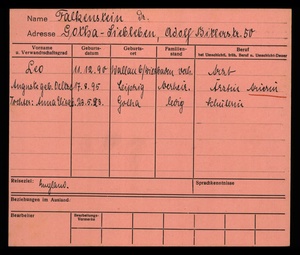 Name Falkenstein Dr.
Adresse Gotha-Siebleben, Adolf Hitlerstr. 50
Vorname u. Verwandtschaftsgrad Geburts-datum Geburts-ort Familien-stand Beruf
Leo 11.12.90 Wallau b/Wiesbaden verh. Arzt
Auguste geb. 17.8.95 Leipzig Verheir. Ärztin
Tochter: Anna 24.5.23. Gotha ledig Schülerin
Reiseziel: England. Sprachkenntnisse
Beziehungen im Ausland:
Bearbeiter Bearbeitungs-Vermerk